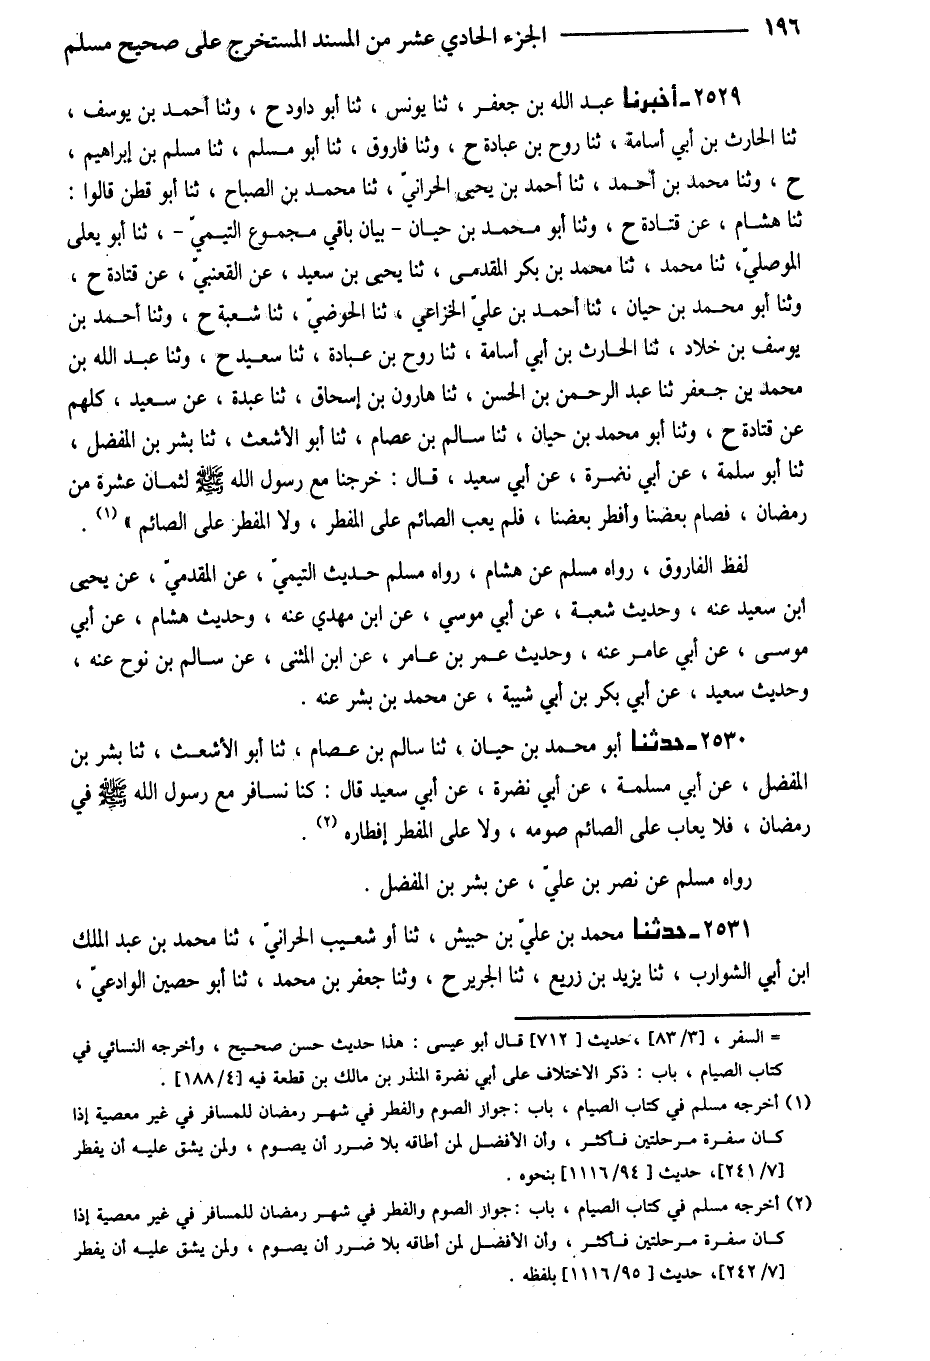 ١٩٦ ــــــــــ الجزء الحادي عشر من المسند المستخرج على صحيح مسلم
٢٥٢٩ـ أخبرنا عبد الله بن جعفر ، ثنا يونس ، ثنا أبو داود ح ، وثنا أحمد بن يوسف ،
ثنا الحارث بن أبي أسامة ، ثنا روح بن عبادة ح ، وثنا فاروق ، ثنا أبو مسلم ، ثنا مسلم بن إبراهيم ،
ح ، وثنا محمد بن أحمد ، ثنا أحمد بن يحيى الحرانيّ ، ثنا محمد بن الصباح ، ثنا أبو قطن قالوا :
ثنا هشام ، عن قتادة ح ، وثنا أبو محمد بن حيان – بيان باقي مجموع التيميّ – ، ثنا أبو يعلى
الموصليّ، ثنا محمد ، ثنا محمد بن بكر المقدمى ، ثنا يحيى بن سعيد ، عن القعنبيّ ، عن قتادة ح ،
وثنا أبو محمد بن حيان ، ثنا أحمد بن عليّ الخزاعي ، ثنا الحوضيّ ، ثنا شعبة ح ، وثنا أحمد بن
يوسف بن خلاد ، ثنا الحارث بن أبي أسامة ، ثنا روح بن عبادة ، ثنا سعيد ح ، وثنا عبد الله بن
محمد بن جعفر ثنا عبد الرحمن بن الحسن ، ثنا هارون بن إسحاق ، ثنا عبدة ، عن سعيد ، كلهم
عن قتادة ح ، وثنا أبو محمد بن حيان ، ثنا سالم بن عصام ، ثنا أبو الأشعث ، ثنا بشر بن المفضل ،
ثنا أبو سلمة ، عن أبي نضرة ، عن أبي سعيد ، قال : خرجنا مع رسول الله ﷺ لثمان عشرة من
رمضان ، فصام بعضنا وأفطر بعضنا ، فلم يعب الصائم على المفطر ، ولا المفطر على الصائم » (١) .
لفظ الفاروق ، رواه مسلم عن هشام ، رواه مسلم حديث التيميّ ، عن المقدميّ ، عن يحيى
ابن سعيد عنه ، وحديث شعبة ، عن أبي موسي ، عن ابن مهدي عنه ، وحديث هشام ، عن أبي
موسى ، عن أبي عامر عنه ، وحديث عمر بن عامر ، عن ابن المثنى ، عن سالم بن نوح عنه ،
وحديث سعيد ، عن أبي بكر بن أبي شيبة ، عن محمد بن بشر عنه .
٢٥٣٠ـ حدثنا أبو محمد بن حيان ، ثنا سالم بن عصام ، ثنا أبو الأشعث ، ثنا بشر بن
المفضل ، عن أبي مسلمة ، عن أبي نضرة ، عن أبي سعيد قال : كنا نسافر مع رسول الله ﷺ في
رمضان ، فلا يعاب على الصائم صومه ، ولا على المفطر إفطاره (٢) .
رواه مسلم عن نصر بن عليّ ، عن بشر بن المفضل .
٢٥٣١ـ حدثنا محمد بن عليّ بن حبيش ، ثنا أو شعيب الحرانيّ ، ثنا محمد بن عبد الملك
ابن أبي الشوارب ، ثنا يزيد بن زريع ، ثنا الجرير ح ، وثنا جعفر بن محمد ، ثنا أبو حصين الوادعيّ ،
= السفر ، [٨٣/٣] ،حديث [ ٧١٢] قال أبو عيسى : هذا حديث حسن صحيح ، وأخرجه النسائي في
كتاب الصيام ، باب : ذكر الاختلاف على أبي نضرة المنذر بن مالك بن قطعة فيه [١٨٨/٤] .
(١) أخرجه مسلم في كتاب الصيام ، باب :جواز الصوم والفطر في شهر رمضان للمسافر في غير معصية إذا
كان سفرة مرحلتين فأكثر ، وأن الأفضل لمن أطاقه بلا ضرر أن يصوم ، ولمن يشق عليه أن يفطر
[٢٤١/٧]، حديث [ ١١١٦/٩٤] بنحوه .
(٢) أخرجه مسلم في كتاب الصيام ، باب :جواز الصوم والفطر في شهر رمضان للمسافر في غير معصية إذا
كان سفرة مرحلتين فأكثر ، وأن الأفضل لمن أطاقه بلا ضرر أن يصوم ، ولمن يشق عليه أن يفطر
[٢٤٢/٧]، حديث [ ١١١٦/٩٥] بلفظه .